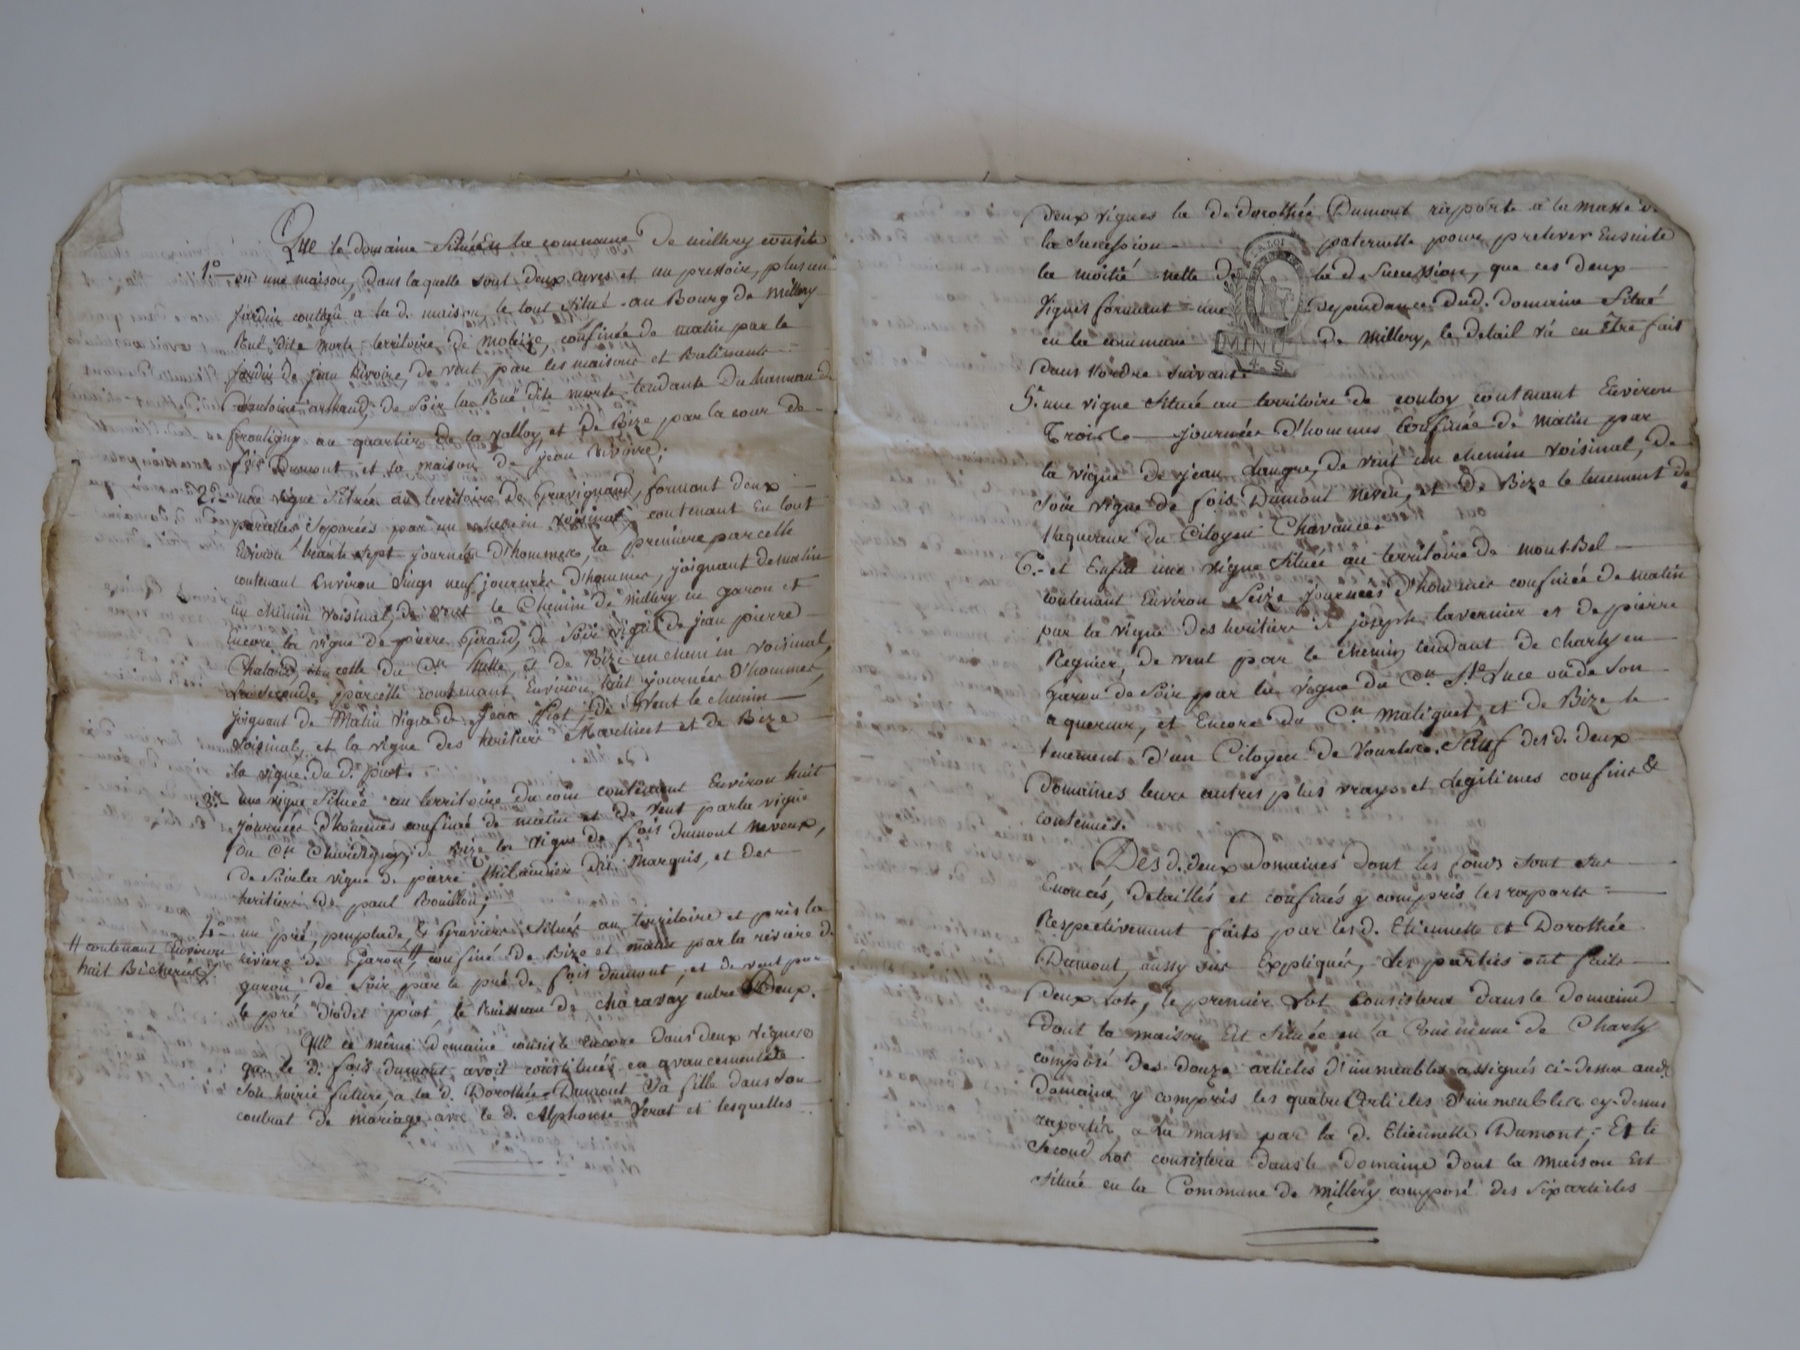 Que le domaine Situé En la commune de millery consiste
1.° en une maison, dans laquelle sont deux cuves et un pressoir, plus un
Jardin contigu a la d. maison, le tout Situé au Bourg de Millery
Rue dite morte territoire de moleize, confinée de matin par le
jardin de jean Rivoire, de vent par les maisons et Batiments
d'antoine arthaud, de Soir la Rue dite morte tendante du hameau de
au quartier de la Valloy, et de Bize par la cour de
f.ois Dumont et la maison de jean Rivoire;
2.° une vigne Située au territoire de Gravignand, formant deux
parcelles Separées par un chemin voisinal, contenant En tout
Environ trante sept journées d'hommes, la premiere parcelle
contenant Environ vingt neuf journées d'hommes, joignant de matin
un chemin voisinal, de vent le Chemin de Millery en garon et
Encore la vigne de pierre Giraud, de Soir vigne de jean pierre
et celle du C.en et de Bize un chemin voisinal,
La seconde parcelle contenant Environ huit journées d'hommes,
joignant de Matin vigne de Jean Piot, de Vent le chemin
voisinal, et la vigne des heritiers Machivet et de Bize
la vigne du d. piot.
3.° une vigne Située au territoire du coin contenant Environ huit
journées d'hommes confinée de matin et de vent par la vigne
du C.en de Bize la vigne de f.ois dumont Neveux,
de Soir la vigne de pierre dit Marquis, et des
heritiers de paul Bouillon;
4.° un pré, peuplade & Graviere Situés au territoire et près la
riviere de Garon # confiné de Bize et matin par la riviere de
# contenant Environ
huit Bicherées
garon de Soir par le pré de f.ois dumont, et de vent par
le pré dudit piot, le Ruisseau de charavay entre Deux.
Que ce même domaine consiste encore dans deux vignes
que le d. f.ois dumont avoit constituées en avancement de
Son hoirie future, a la d. Dorothée Dumont Sa fille dans Son
contrat de mariage avec le d. Alphonse Verat et lesquelles
deux vignes la de dorothée Dumont rapporte a la masse de
la Succession paternelle pour prelever Ensuite
la moitié nette de la d. Succession, que ces deux
Vignes formant une dependance dud. domaine Situé
en la commune de Millery, le detail va en Être fait
dans l'ordre suivant
A LOI
MINUT
4 S.
5.° une vigne Située au territoire de couloy contenant Environ
Trois journées d'hommes Confinée de Matin par
la vigne de jean Laugre, de vent un chemin voisinal, de
Soir vigne de fois Dumont Neveu, et de Bize le tenement de
l'aquereur du Citoyen Chavance.
6.° et Enfin une vigne Située au territoire de mont-Bel
contenant Environ Seize journées d'hommes confinée de matin
par la vigne des heritiers de joseph lavernier et de pierre
Regnier, de vent par le chemin tendant de charly en
garon de Soir par la vigne du C.en St. Luce ou de Son
aquereur, et Encore du C.en Maliquet, et de Bize le
tenement d'un Citoyen de Vourles. Sauf des d. deux
Domaines leurs autres plus vrays et legitimes confins &
contenues.
Des d. deux Domaines dont les fonds sont sus
Enoncés, detaillés et confinés y compris les raports
Respectivement faits par les d. Etiennette et Dorothée
Dumont, aussy sus Expliqués, Les parties ont faits
Deux Lots, le premier Lot Consistera dans le Domaine
dont la maison Est Située en la Commune de Charly
composé des douze articles d'immeubles assignés ci-dessus aud.
Domaine y compris les quatre Articles d'immeubles cy-dessus
raportés, a la masse par la d. Etiennette Dumont; Et le
Second Lot consistera dans le domaine dont la maison Est
située en la Commune de Millery composé des Six articles